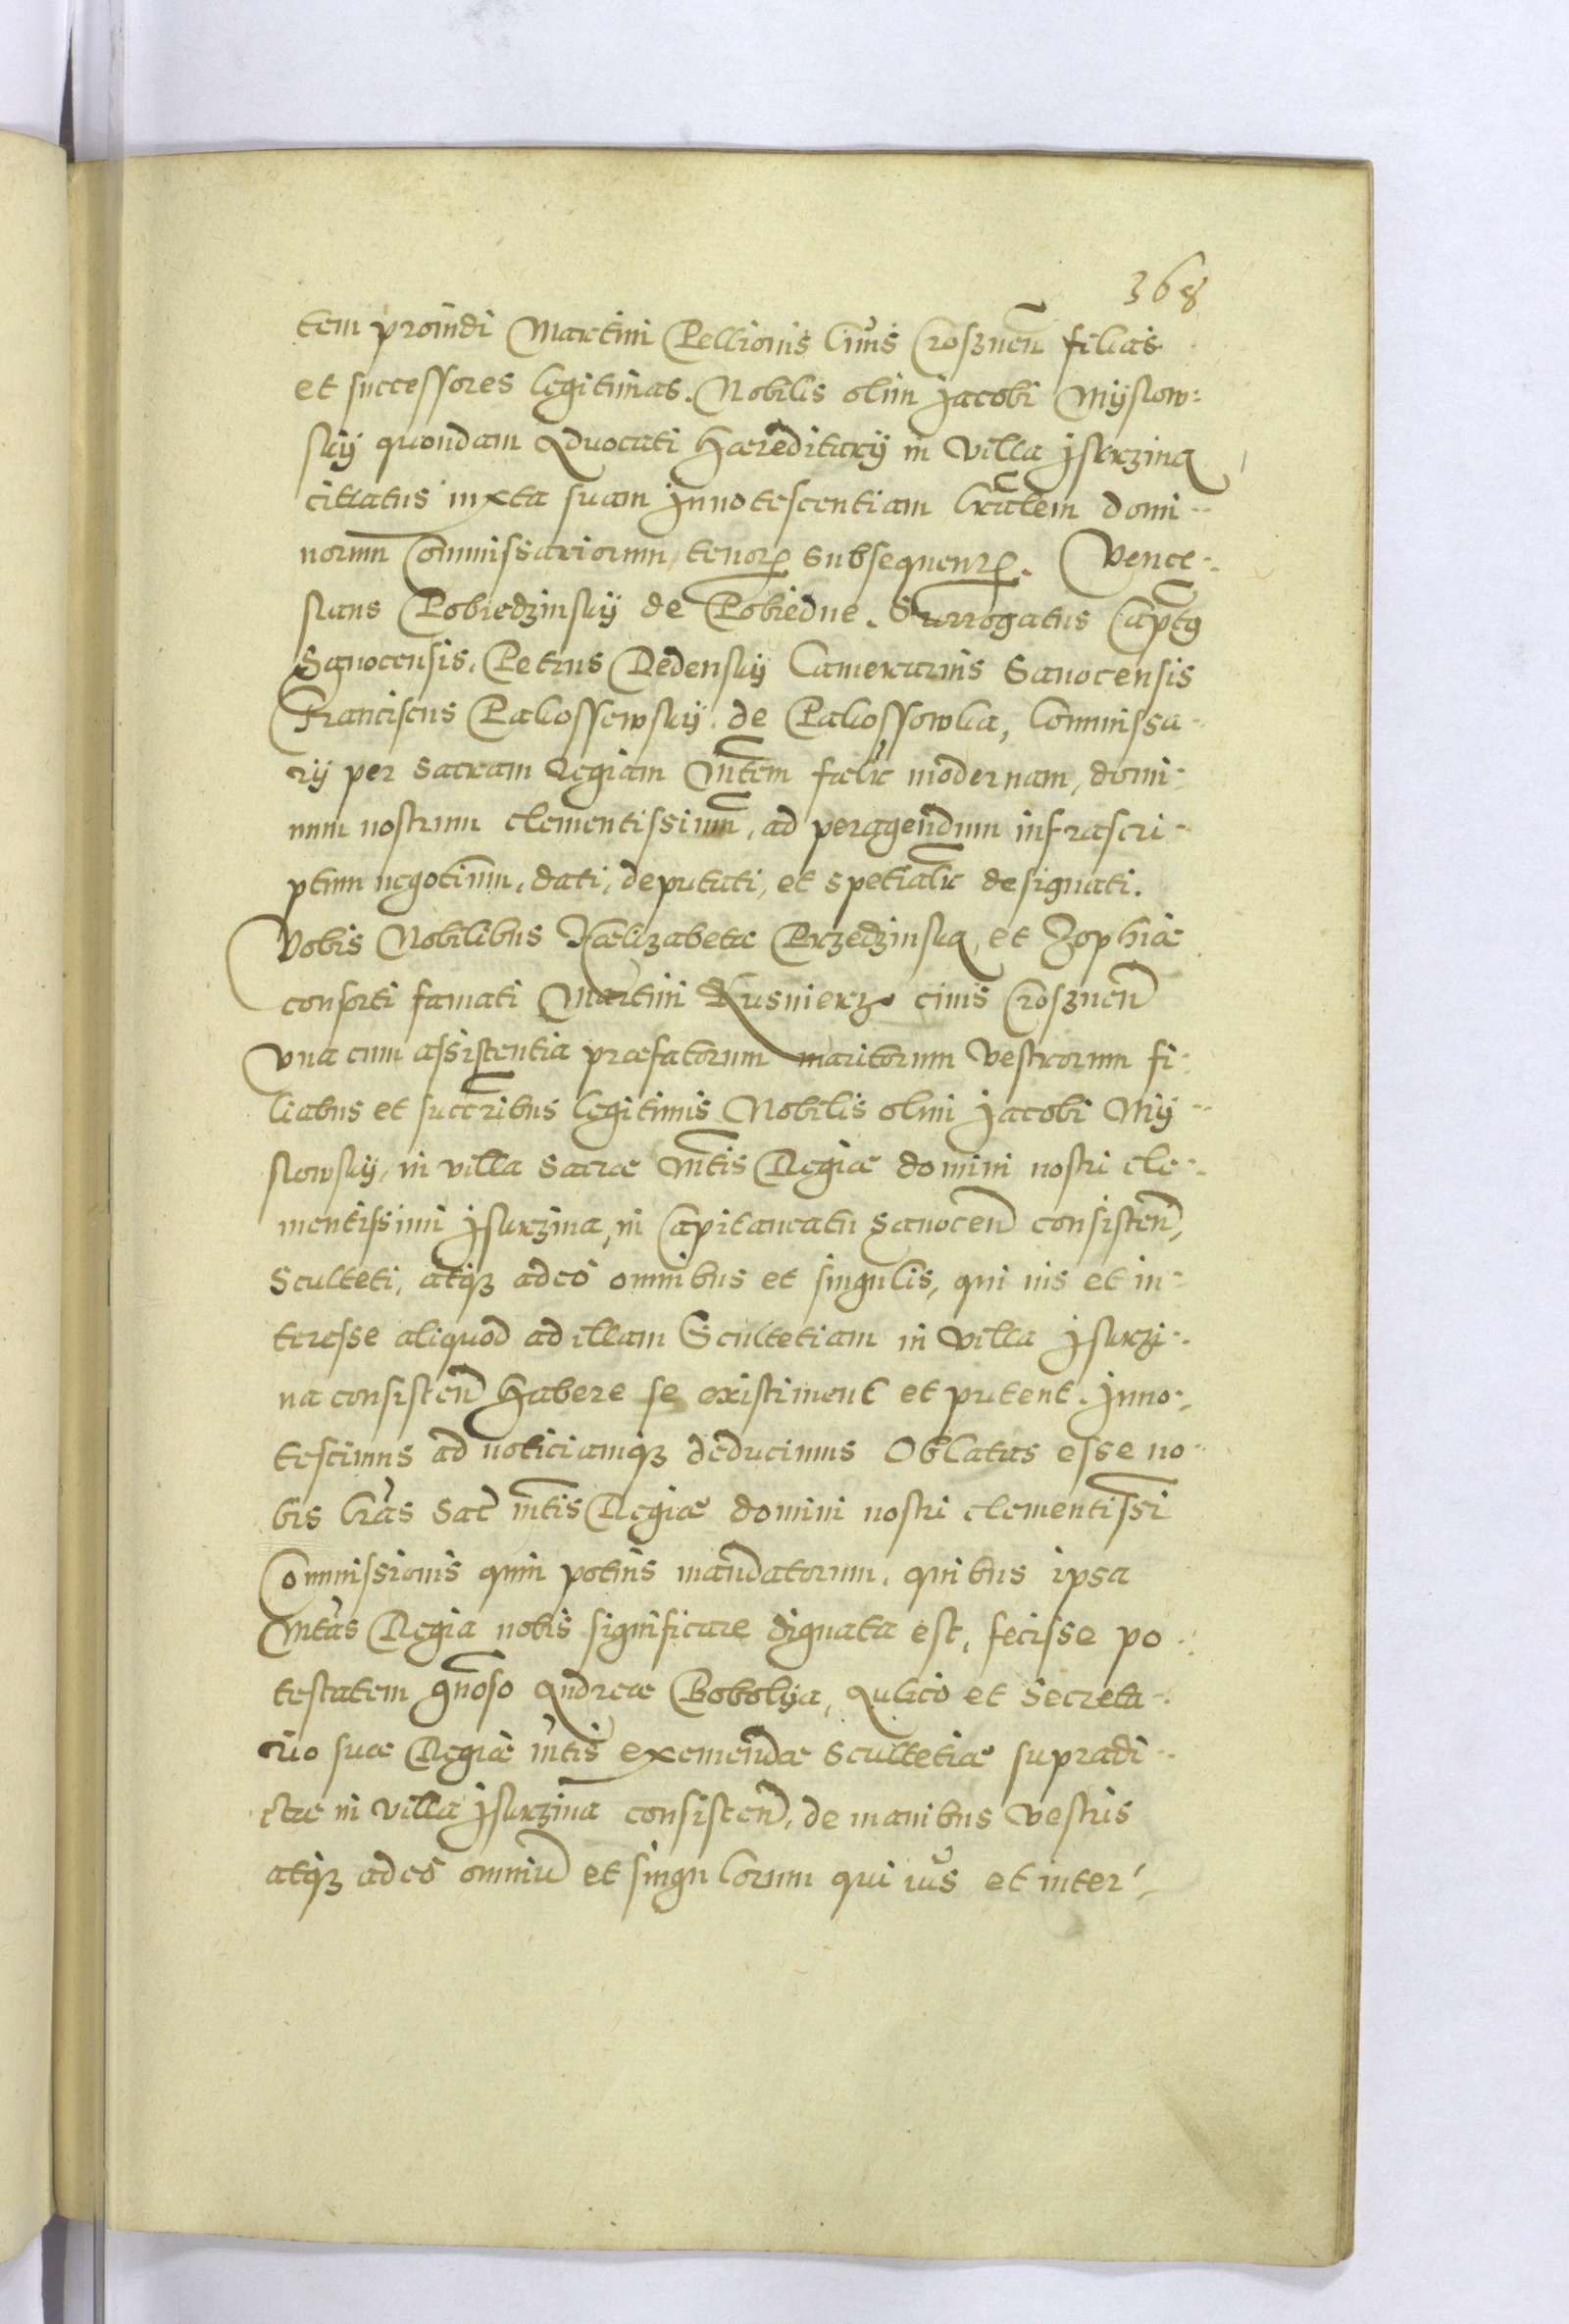 368
tem proindi Martini Pellionis Ciuis Croßnen̄ filias
et successores legitimas. Nobilis olim Jacobi Myslow:
sky quondam Aduocati Hæreditarij in villa Iskrzina
cittatus iuxta suam Innotescentiam Lrālem domi-
norum Commissariorum tenoris subsequentis. Vence-
slaus Pobiedzinsky de Pobiedne. Surrogatus Capt͠
Sanocensis, Petrus Dedensky Camerarius Sanocensis
Franciscus Pakossewsky de Pakossowka, Commissa-
rij per Sacram Regiam Mt͠em fœlr̄ modernam, domi-
num nostrum clementissimū, ad peragendum infrascri-
ptum negotium, dati, deputati, et spetialr̄ designati.
Vobis Nobilibus Hælizabetæ Przedzinska, et Zophiæ
consorti famati Martini Kusnierz ciuis Croßnen̄
vna cum assistentia præfatorum maritorum vestrorum fi-
liabus et succr̄ibus legitimis Nobilis olim Jacobi My-
slowsky, in villa Sacræ Mt͠is Regiæ domini nostri cle-
mentissimi Iskrzina, in Capitaneatu Sanocen̄ consisten̄,
Sculteti, atqз adeo omnibus et singulis, qui ius et in-
teresse aliquod ad illam Scultetiam in villa Iskrzi-
na consisten̄ habere se existiment et putent. Inno-
tescimus ad noticiamqз deducimus Oblatas esse no-
bis lrās Sac̄ mt͠is Regiæ domini nostri clementissi
Commissionis quin potius mandatorum, quibus ipsa
Mt͠as Regia nobis significare dignata est, fecisse po-
testatem gn̄oso Andreæ Bobolya, Aulico et Secreta-
rio suæ Regiæ mt͠is exemendæ Scultetiæ supradi-
ctæ in villa Iskrzina consisten̄, de manibus vestris
atqз adeo omniū et singulorum qui ius et inter-